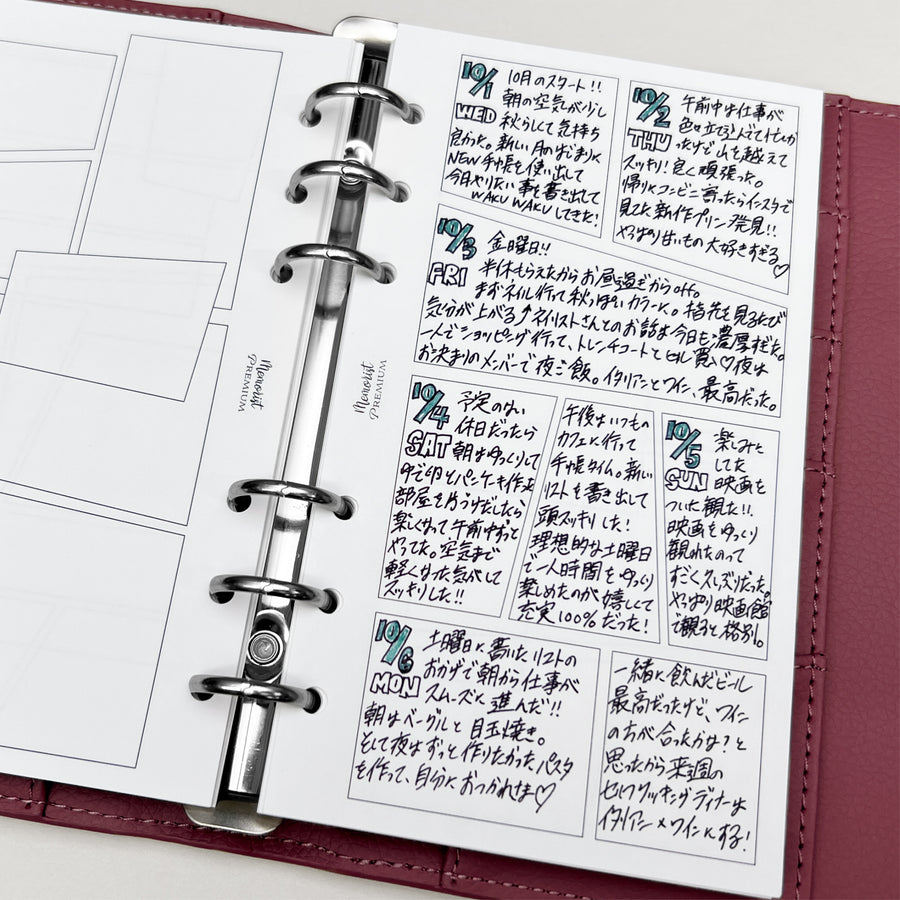 Memorist
PREMIUM
Memorist
PREMIUM
10/1
WED
10月のスタート!!
朝の空気が少し
秋らしくて気持ち
良かった。新しい月のはじまりに
NEW手帳を使い出して
今日やりたい事を書き出して
WAKU WAKUしてきた!
10/2
THU
午前中は仕事が
色々立て込んでて忙しか
ったけど山を越えて
スッキリ!良く頑張った。
帰りにコンビニ寄ったらインスタで
見てた新作プリン発見!!
やっぱり甘いもの大好きすぎる♡
10/3
FRI
金曜日!!
半休もらえたからお昼過ぎからoff。
まずネイル行って秋っぽいカラーに。指先を見るたび
気分が上がる↑ネイリストさんとのお話は今日も濃厚だった。
一人でショッピング行って、トレンチコートとヒール買い♡夜は
お決まりのメンバーで夜ご飯。イタリアンとワイン、最高だった。
10/4
SAT
予定のない
休日だったから
朝はゆっくりして
ゆで卵とパンケーキ作った
部屋を片づけだしたら
楽しくなって午前中ずっと
やってた。空気まで
軽くなった気がして
スッキリした!!
午後はいつもの
カフェに行って
手帳タイム。新しい
リストを書き出して
頭スッキリした!
理想的な土曜日
で一人時間をゆっくり
楽しめたのが嬉しくて
充実100%だった!
10/5
SUN
楽しみに
してた
映画を
ついに観た!!
映画をゆっくり
観れたのって
すごく久しぶりだった。
やっぱり映画館
で観ると格別。
10/6
MON
土曜日に書いたリストの
おかげで朝から仕事が
スムーズに進んだ!!
朝はベーグルと目玉焼き。
そして夜はずっと作りたかったパスタ
を作って、自分におつかれさま♡
一緒に飲んだビール
最高だったけど、ワイン
のが合ったかな?と
思ったから来週の
セルフクッキングディナーは
イタリアン×ワインにする!